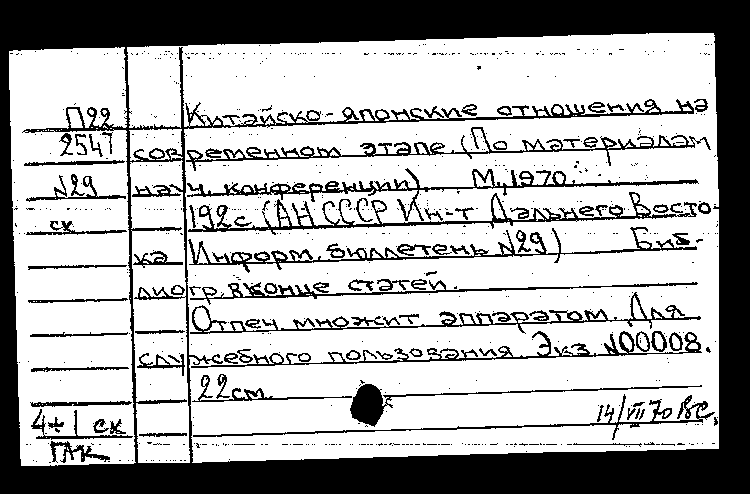 П22 Китайско-японские отношения на
2547 современном этапе. (По материалам
N29 науч. конференции). М., 1970.
ск 192с. (АН СССР Ин-т Дальнего Восто-
ка Информ. бюллетень N29) Биб-
лиогр. в конце статей.
Отпеч. множит. аппаратом. Для
служебного пользования. Экз. N00008.
22см.
4+1 ск 14/VII 70 ВС.
ГАК